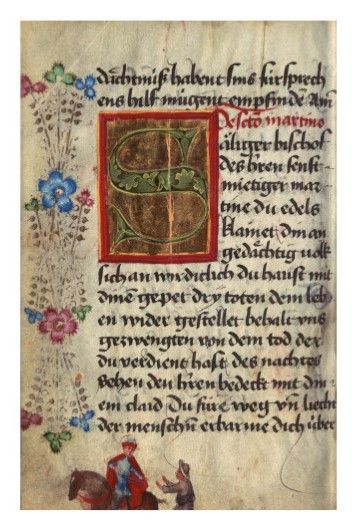 dächtnuß habent sins fürsprech
ens hilf mügent empfinde Am
De scto martino
Säliger bischof
des hren senft
mietiger mar
tine du edels
klainet din an
gedächtig volk
sich an wirdiclich du haust mit
dine gepet dry toten dem leb
en wider gestellet behalt vns
gezwengten von dem tod der
du verdient hast des nachtes
sehen den hren bedeckt mit din
em claid Du füre weg vn liecht
der menschn erbarme dich über